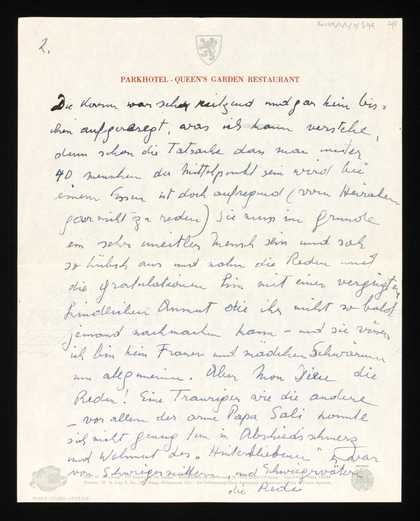 2.
PARKHOTEL - QUEEN'S GARDEN RESTAURANT
Die war sehr reizend und gar kein bis-
chen aufgeregt, was ich kaum verstehe,
denn schon die Tatsache dass man unter
40 menschen der Mittelpunkt sein wird bei
einem Essen ist doch aufregend (vom Heiraten
gar nicht zu reden) Sie muss im Grunde
ein sehr uneitler Mensch sein und sah
so hübsch aus und nahm die Reden und
die Gratulationen hin mit einer vergnügten,
kindlichen Anmut die ihr nicht so bald
jemand nachmachen kann – und sie wissen
ich bin kein Frauen und mädchen Schwärmer
im allgemeinen. Aber Mon Dieu die
Reden! Eine Trauriger wie die andere
– vor allem der arme Papa Sali konnte
sich nicht genug tun in Abschiedsschmerz
und Wehmut der "Hinterbliebenen"
von Schwiegermüttern und Schwiegervätern
die Rede